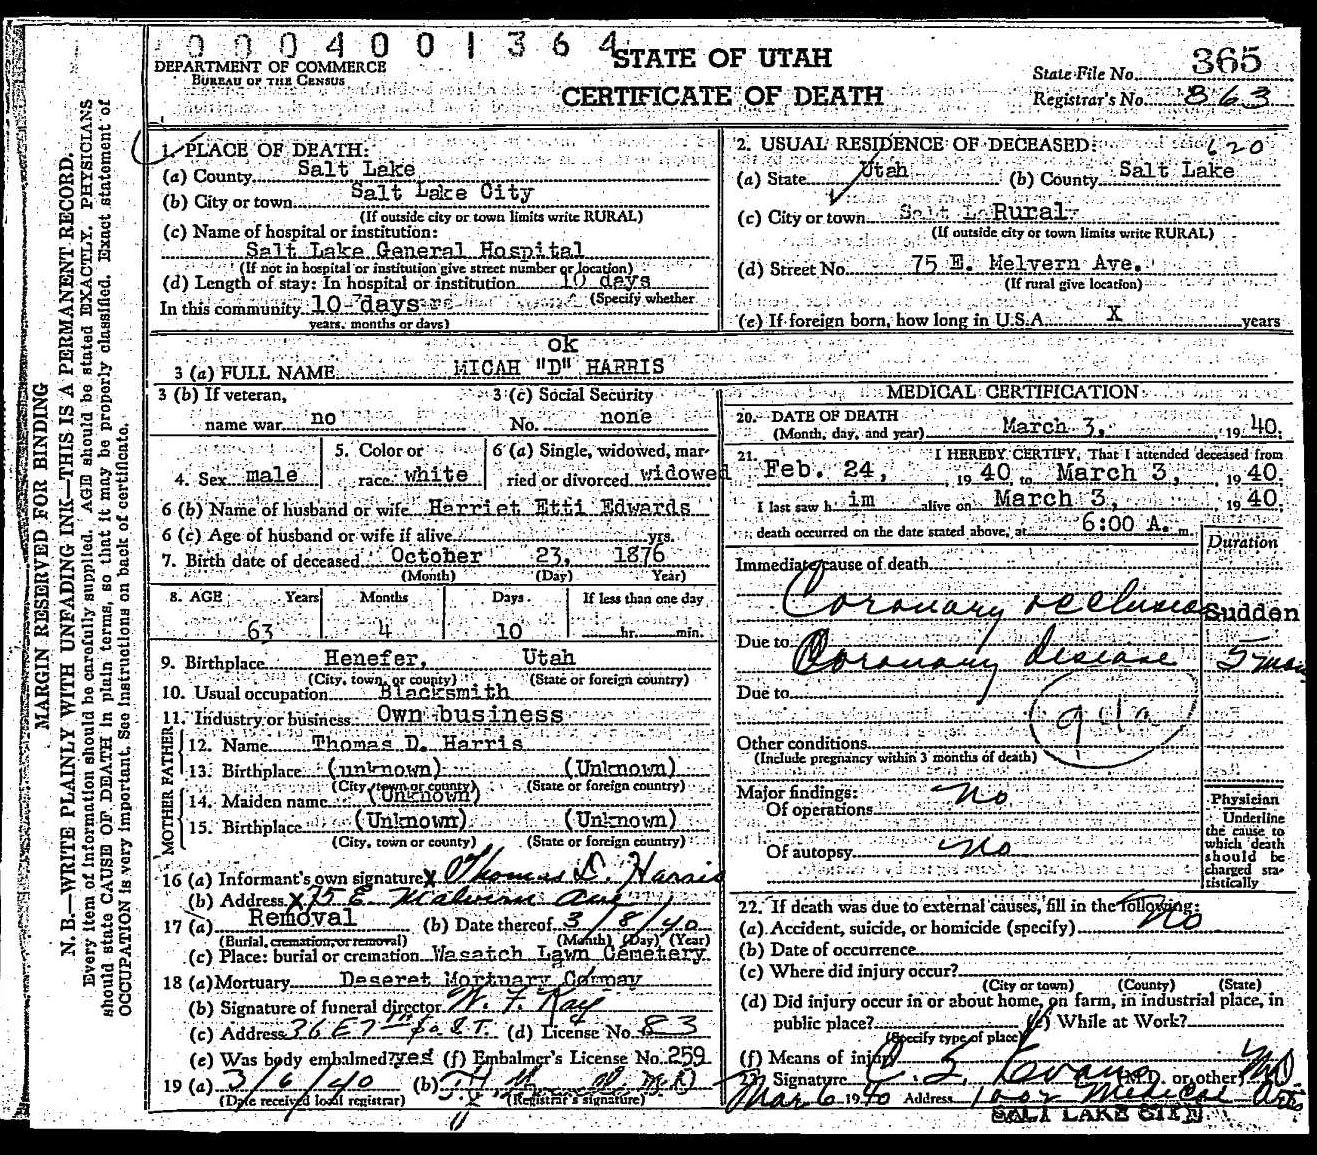 0004001364
STATE OF UTAH
DEPARTMENT OF COMMERCE
BUREAU OF THE CENSUS
CERTIFICATE OF DEATH
State File No. 365
Registrar's No. 863
1. PLACE OF DEATH:
(a) County Salt Lake
(b) City or town Salt Lake City
(If outside city or town limits write RURAL)
(c) Name of hospital or institution:
Salt Lake General Hospital
(If not in hospital or institution give street number or location)
(d) Length of stay: In hospital or institution 10 days
(Specify whether
In this community 10 days
years, months or days)
2. USUAL RESIDENCE OF DECEASED: 620
(a) State Utah (b) County Salt Lake
(c) City or town Rural
(If outside city or town limits write RURAL)
(d) Street No. 75 E. Melvern Ave.
(If rural give location)
(e) If foreign born, how long in U.S.A. X years
ok
3 (a) FULL NAME MICAH "D" HARRIS
3 (b) If veteran, name war no
3 (c) Social Security No. none
4. Sex male
5. Color or race white
6 (a) Single, widowed, married or divorced widowed
6 (b) Name of husband or wife Harriet Etti Edwards
6 (c) Age of husband or wife if alive yrs.
7. Birth date of deceased October 23, 1876
(Month) (Day) Year)
8. AGE Years Months Days If less than one day
63 4 10 hr. min.
9. Birthplace Henefer, Utah
(City, town, or county) (State or foreign country)
10. Usual occupation Blacksmith
11. Industry or business Own business
FATHER
12. Name Thomas D. Harris
13. Birthplace (unknown) (Unknown)
(City, town or county) (State or foreign country)
MOTHER
14. Maiden name (Unknown)
15. Birthplace (Unknown) (Unknown)
(City, town or county) (State or foreign country)
16 (a) Informant's own signature X Thomas D. Harris
(b) Address X 75 E. Malvern Ave
17 (a) Removal (b) Date thereof 3/8/40
(Burial, cremation, or removal) (Month) (Day) (Year)
(c) Place: burial or cremation Wasatch Lawn Cemetery
18 (a) Mortuary Deseret Mortuary Compay
(b) Signature of funeral director W. F. Kay
(c) Address 36 E 7th So. S.T. (d) License No. 83
(e) Was body embalmed? yes (f) Embalmer's License No. 259
19 (a) 3/6/40 (b)
(Date received local registrar) (Registrar's signature)
MEDICAL CERTIFICATION
20. DATE OF DEATH
(Month, day, and year) March 3, 1940.
21. I HEREBY CERTIFY, That I attended deceased from
Feb. 24, 1940 to March 3, 1940.
I last saw h im alive on March 3, 1940
death occurred on the date stated above, at 6:00 A. m.
Duration
Immediate cause of death
Coronary occlusion Sudden
Due to Coronary disease 5 mos
Due to
94a
Other conditions
(Include pregnancy within 3 months of death)
Major findings:
Of operations no
Of autopsy no
Physician
Underline
the cause to
which death
should be
charged sta-
tistically
22. If death was due to external causes, fill in the following:
(a) Accident, suicide, or homicide (specify) No
(b) Date of occurrence
(c) Where did injury occur?
(City or town) (County) (State)
(d) Did injury occur in or about home, on farm, in industrial place, in
public place? (e) While at Work?
(Specify type of place)
(f) Means of injury
23. Signature C. S. Evans (M.D. or other) M.D.
Mar 6 1940 Address 1002 Medical Arts
SALT LAKE CITY
MARGIN RESERVED FOR BINDING
N. B.—WRITE PLAINLY WITH UNFADING INK—THIS IS A PERMANENT RECORD.
Every item of information should be carefully supplied. AGE should be stated EXACTLY. PHYSICIANS
should state CAUSE OF DEATH in plain terms, so that it may be properly classified. Exact statement of
OCCUPATION is very important. See instructions on back of certificate.